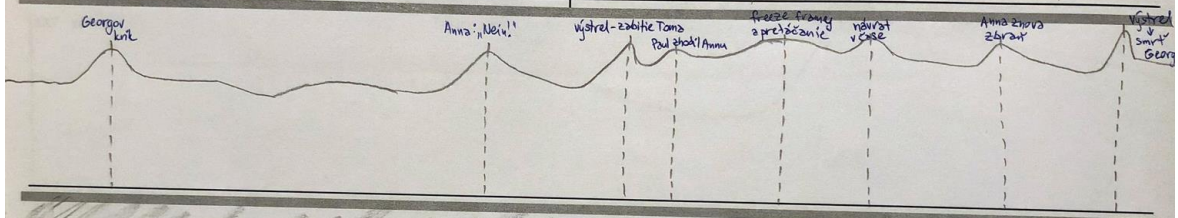 Georgov
krik
Anna: „Nein!“
výstrel - zabitie Toma
Paul zhodil Annu
freeze framy
a pretáčanie
návrat
v čase
Anna znova
zbraň
výstrel
smrť
Georg